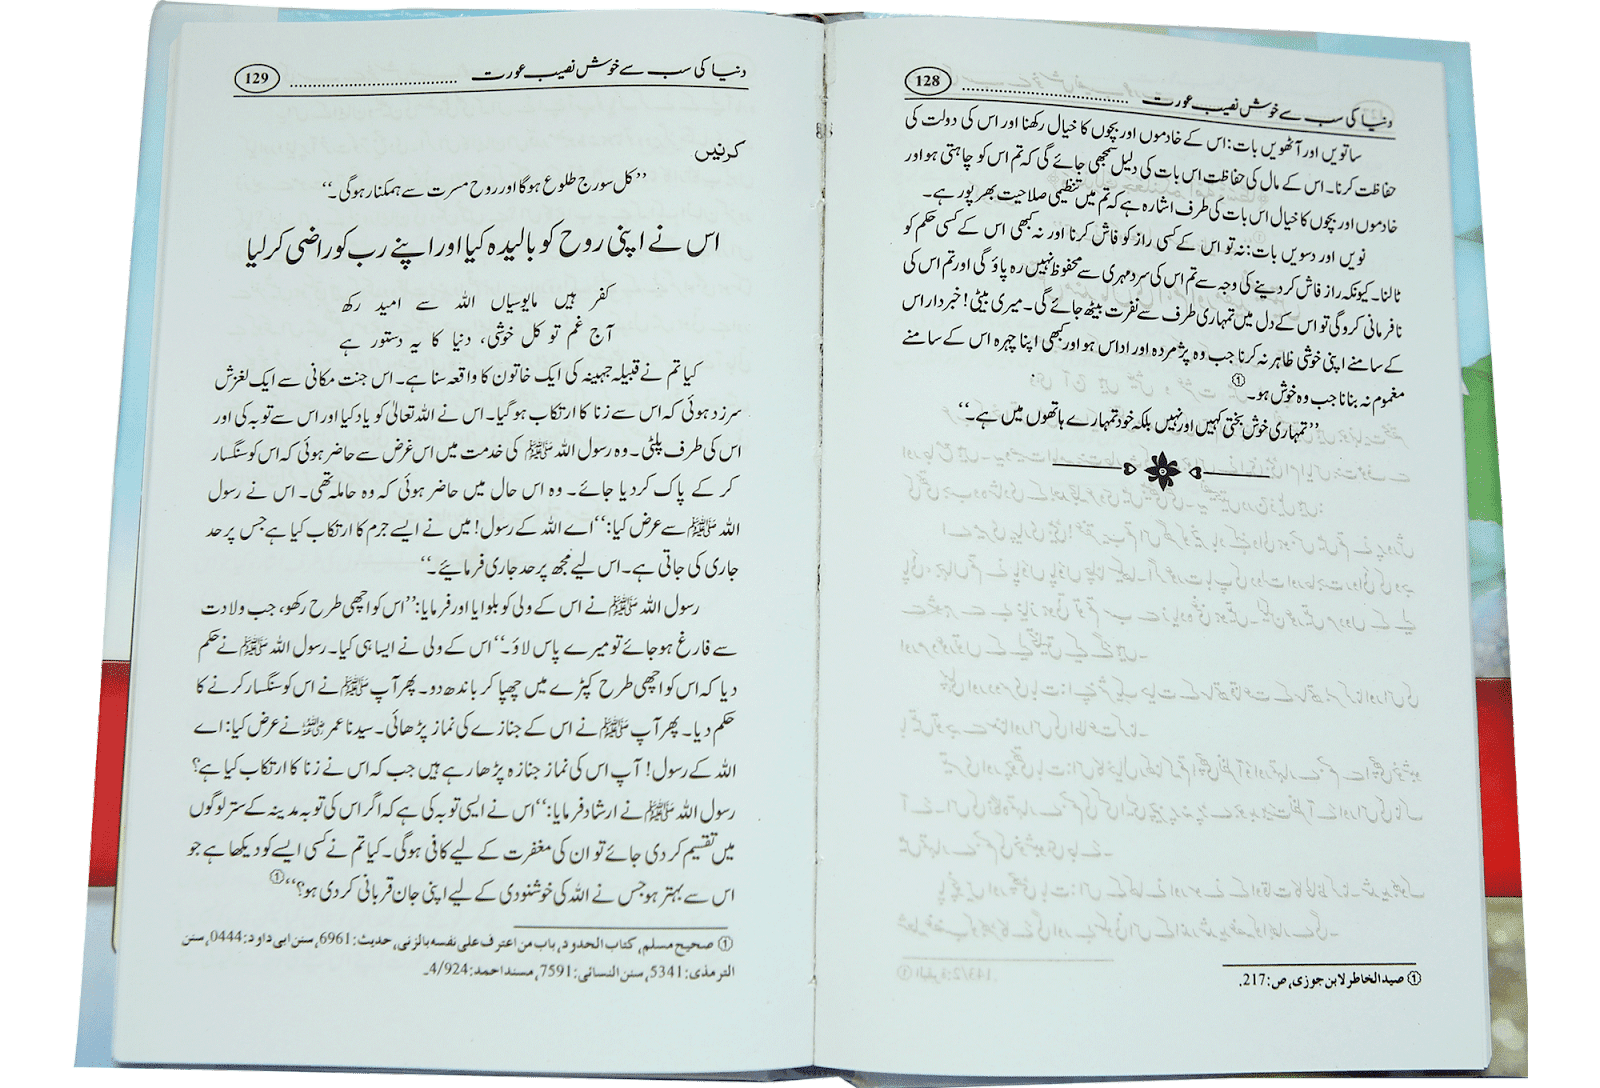 128
دنیا کی سب سے خوش نصیب عورت
ساتویں اور آٹھویں بات: اس کے خادموں اور بچوں کا خیال رکھنا اور اس کی دولت کی
حفاظت کرنا۔ اس کے مال کی حفاظت اس بات کی دلیل سمجھی جائے گی کہ تم اس کو چاہتی ہو اور
خادموں اور بچوں کا خیال اس بات کی طرف اشارہ ہے کہ تم میں تنظیمی صلاحیت بھرپور ہے۔
نویں اور دسویں بات: نہ تو اس کے کسی راز کو فاش کرنا اور نہ کبھی اس کے کسی حکم کو
ٹالنا۔ کیونکہ راز فاش کردینے کی وجہ سے تم اس کی سرد مہری سے محفوظ نہیں رہ پاؤ گی اور تم اس کی
نافرمانی کروگی تو اس کے دل میں تمہاری طرف سے نفرت بیٹھ جائے گی۔ میری بیٹی! خبردار اس
کے سامنے اپنی خوشی ظاہر نہ کرنا جب وہ پژمردہ اور اداس ہو اور کبھی اپنا چہرہ اس کے سامنے
مغموم نہ بنانا جب وہ خوش ہو۔①
’’تمہاری خوش بختی کہیں اور نہیں بلکہ خود تمہارے ہاتھوں میں ہے۔‘‘
① صید الخاطر لابن جوزی، ص:217.
129
دنیا کی سب سے خوش نصیب عورت
کرنیں
’’کل سورج طلوع ہوگا اور روح مسرت سے ہمکنار ہوگی۔‘‘
اس نے اپنی روح کو بالیدہ کیا اور اپنے رب کو راضی کرلیا
کفر ہیں مایوسیاں اللہ سے امید رکھ
آج غم تو کل خوشی، دنیا کا یہ دستور ہے
کیا تم نے قبیلہ جہینہ کی ایک خاتون کا واقعہ سنا ہے۔ اس جنت مکانی سے ایک لغزش
سرزد ہوئی کہ اس سے زنا کا ارتکاب ہوگیا۔ اس نے اللہ تعالیٰ کو یاد کیا اور اس سے توبہ کی اور
اس کی طرف پلٹی۔ وہ رسول اللہ ﷺ کی خدمت میں اس غرض سے حاضر ہوئی کہ اس کو سنگسار
کر کے پاک کردیا جائے۔ وہ اس حال میں حاضر ہوئی کہ وہ حاملہ تھی۔ اس نے رسول
اللہ ﷺ سے عرض کیا: ‘‘اے اللہ کے رسول! میں نے ایسے جرم کا ارتکاب کیا ہے جس پر حد
جاری کی جاتی ہے۔ اس لیے مجھ پر حد جاری فرمائیے۔‘‘
رسول اللہ ﷺ نے اس کے ولی کو بلوایا اور فرمایا: ’’اس کو اچھی طرح رکھو، جب ولادت
سے فارغ ہو جائے تو میرے پاس لاؤ۔‘‘ اس کے ولی نے ایسا ہی کیا۔ رسول اللہ ﷺ نے حکم
دیا کہ اس کو اچھی طرح کپڑے میں چھپا کر باندھ دو۔ پھر آپ ﷺ نے اس کو سنگسار کرنے کا
حکم دیا۔ پھر آپ ﷺ نے اس کے جنازے کی نماز پڑھائی۔ سیدنا عمر رضی اللہ عنہ نے عرض کیا: اے
اللہ کے رسول! آپ اس کی نماز جنازہ پڑھا رہے ہیں جب کہ اس نے زنا کا ارتکاب کیا ہے؟
رسول اللہ ﷺ نے ارشاد فرمایا: ‘‘اس نے ایسی توبہ کی ہے کہ اگر اس کی توبہ مدینہ کے ستر لوگوں
میں تقسیم کردی جائے تو ان کی مغفرت کے لیے کافی ہوگی۔ کیا تم نے کسی ایسے کو دیکھا ہے جو
اس سے بہتر ہو جس نے اللہ کی خوشنودی کے لیے اپنی جان قربانی کردی ہو؟‘‘①
① صحیح مسلم، کتاب الحدود، باب من اعترف علی نفسہ بالزنی، حدیث:6961، سنن ابی داود:0444، سنن
الترمذی:5341، سنن النسائی:7591، مسند احمد:4/924۔